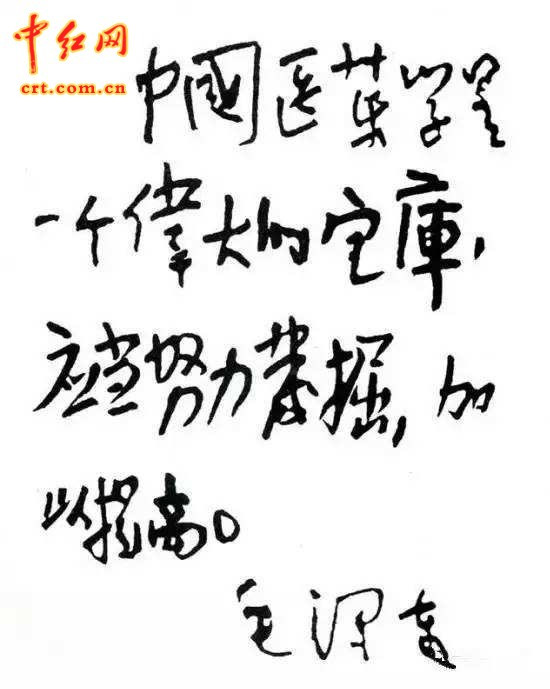 中红网
crt.com.cn
中國医药学是
一个偉大的宝庫,
应当努力發掘,加
以提高。
毛泽东